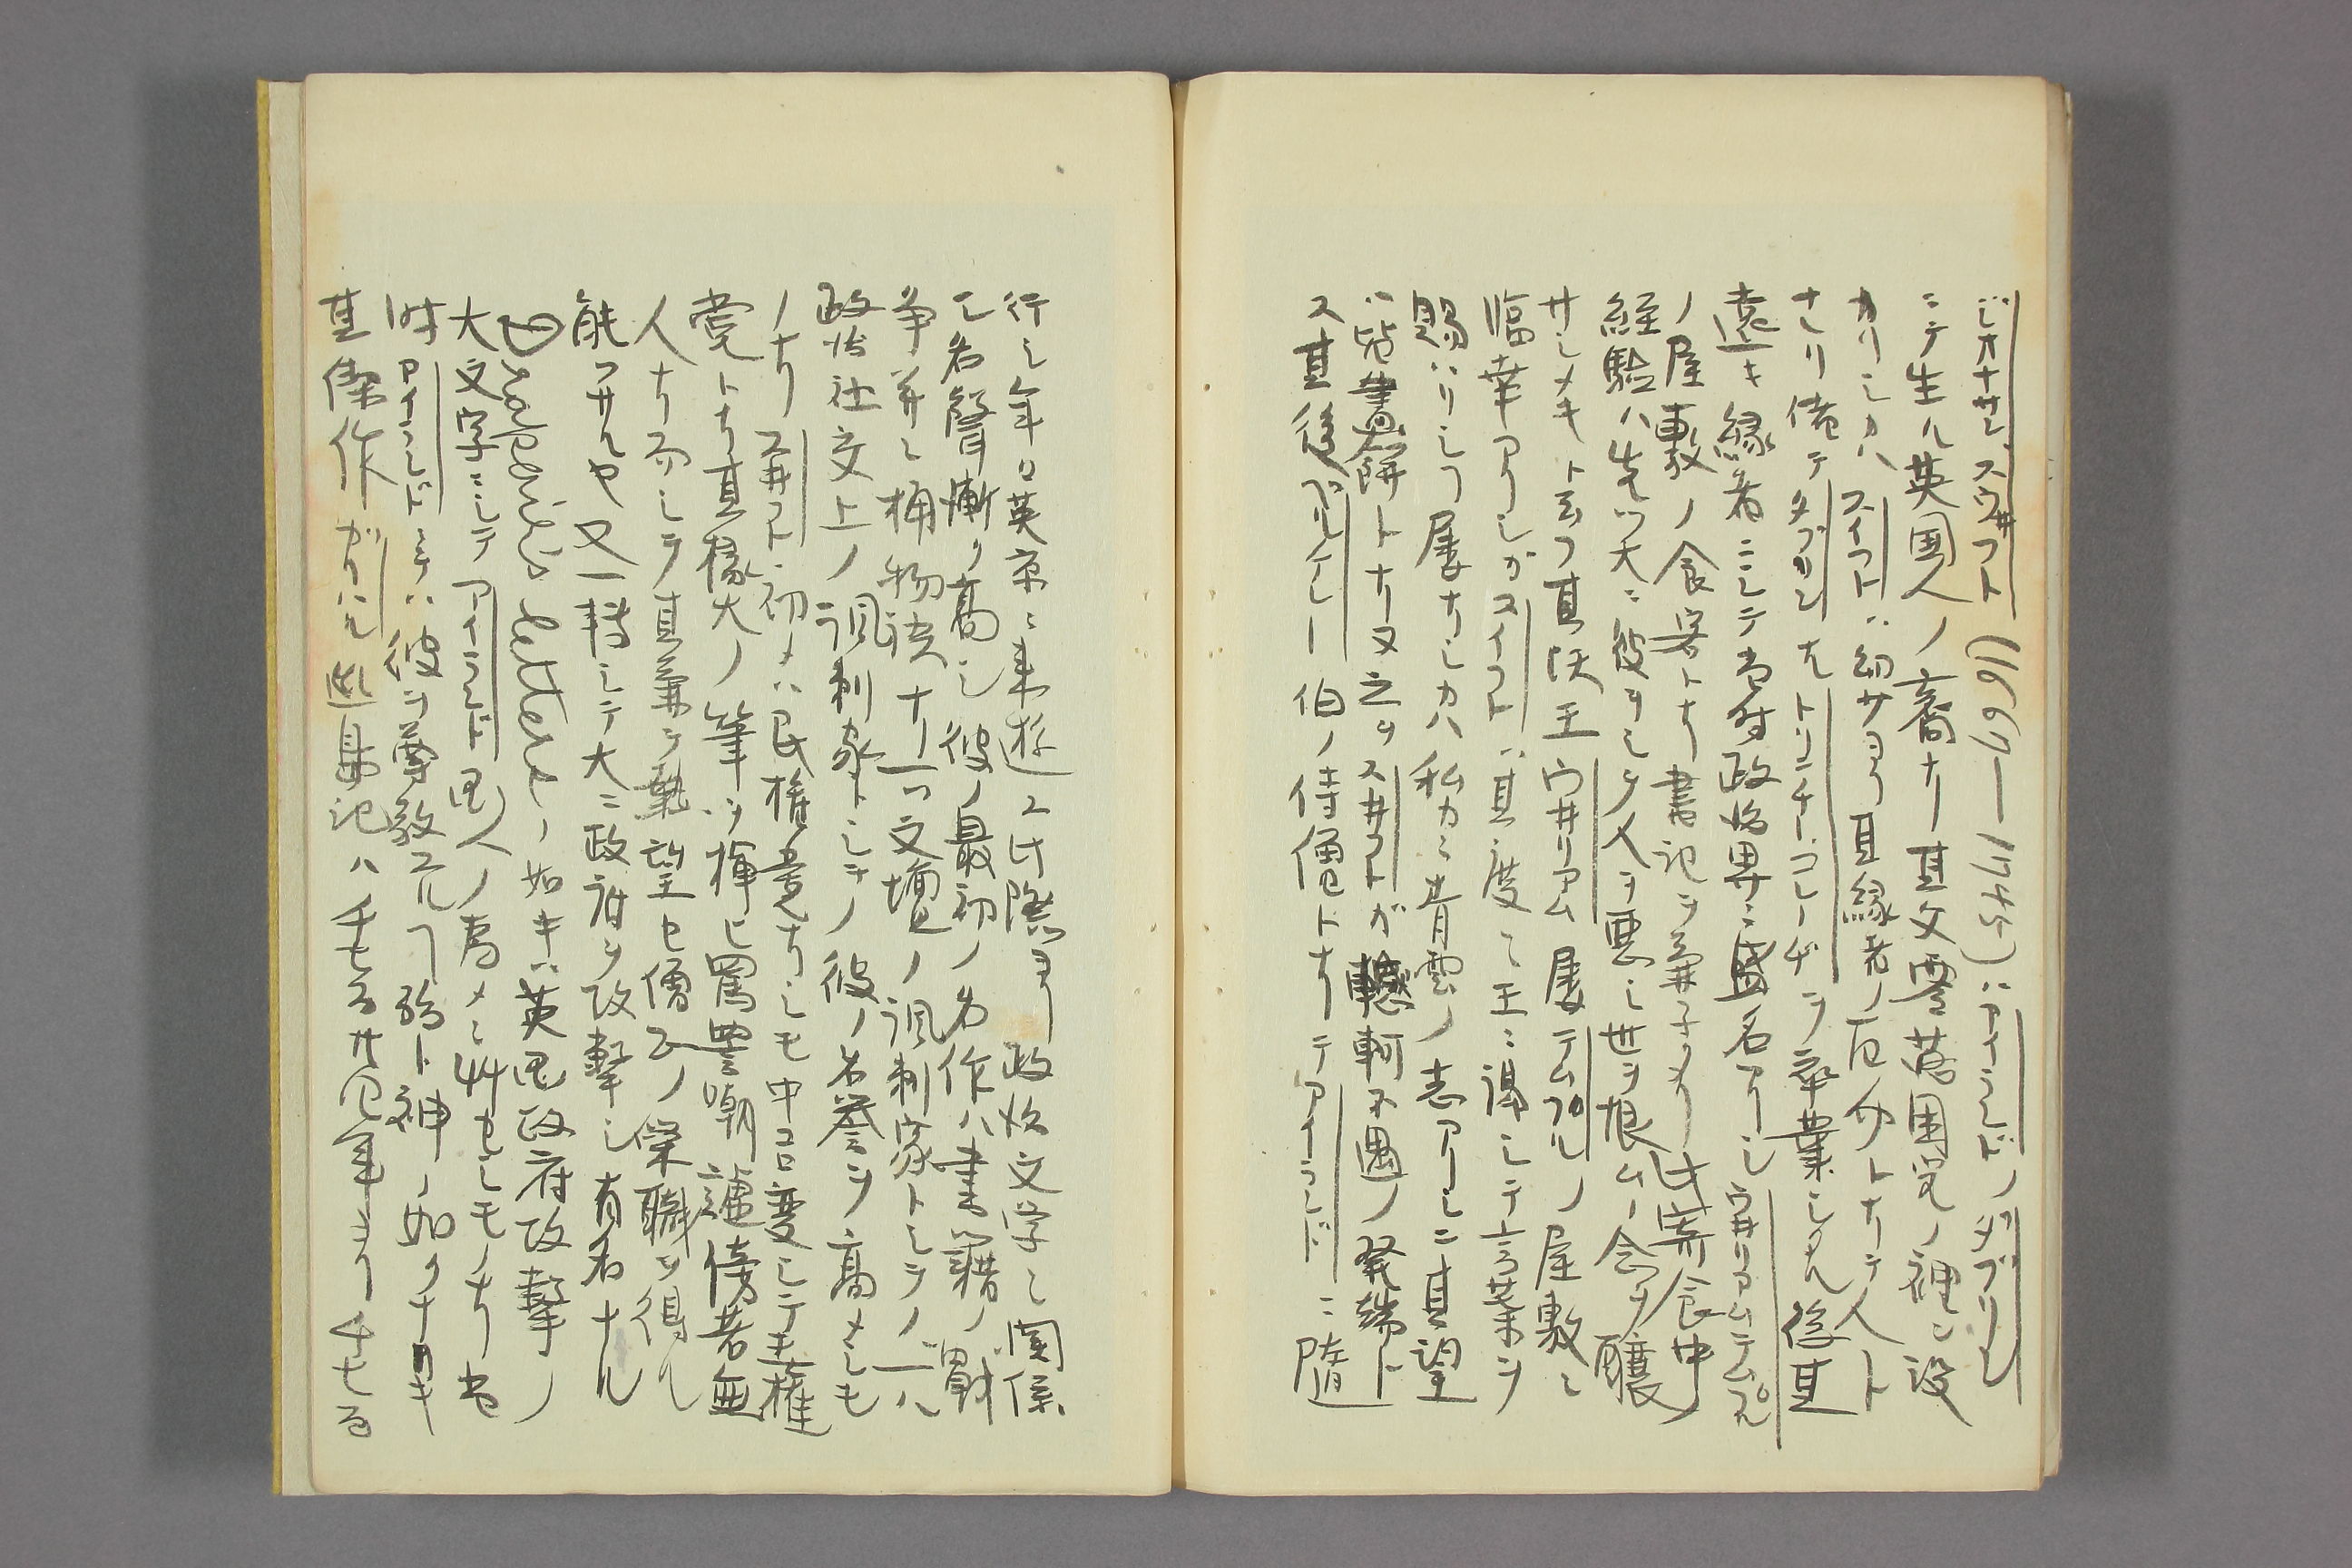 ジオナサン、スウ井フト(1667—1745)ハアイランドノダブリン
ニテ生ル英国人ノ裔ナリ其父零落困究ノ裡ニ没
カリシカハスイフトハ幼サヨリ其縁者ノ厄介トナリテ人ト
ナリ後テダブリンナトリニチーコレーヂヲ卒業シタル後其
遠キ縁者ニシテ当時政治界ニ盛名アリシウ井リアムテムプル
ノ屋敷ノ食客トナリ書記ヲ兼子タリ此寄食中
経験ハ先ツ大ニ彼ヲシテ人ヲ悪ミ世ヲ恨ムノ念ヲ醸
サシメキト云フ其頃王ウ井リアム屡テムプルノ屋敷ニ
臨幸アリシガスイフトハ其度ニ王ニ謁シテ言葉ヲ
賜ハリシヿ屡ナリシカハ私カニ青雲ノ志アリシニ其望
ハ皆画餅トナリヌ之ヲス井フトガ轗軻不遇ノ発端ト
ス其後バルクレー伯ノ侍僧トナリテアイランドニ随
行シ年ロ英京ニ来遊ス此際ヨリ政治文学ニ関係
シ名聲漸ク高シ彼ノ最初ノ名作ハ書籍ノ戦
争并ニ桶物語ナリ一ツ文壇ノ諷刺家トシテノ一ハ
政治社交上ノ諷刺家トシテノ彼ノ名誉ヲ高メシモ
ノナリス井フト初メハ民権党ナリシモ中古変シテ王権
党トナリ其椽大ノ筆ヲ揮ヒ罵詈嘲謔傍若無
人ナリ而シテ其兼テ執望セ僧正ノ栄職ヲ得ル
能ハサルヤ又一轉シテ大ニ政府ヲ攻撃シ有名ナル
Drapier's Lettersノ如キハ英国政府攻撃ノ
大文字ニシテアイランド国人ノ為メニ艸セシモノナリ当
時アイランドニテハ彼ヲ尊敬スルヿ殆ト神ノ如クナリキ
其傑作ガリバル巡島記ハ千七百廿四年ヨリ千七百